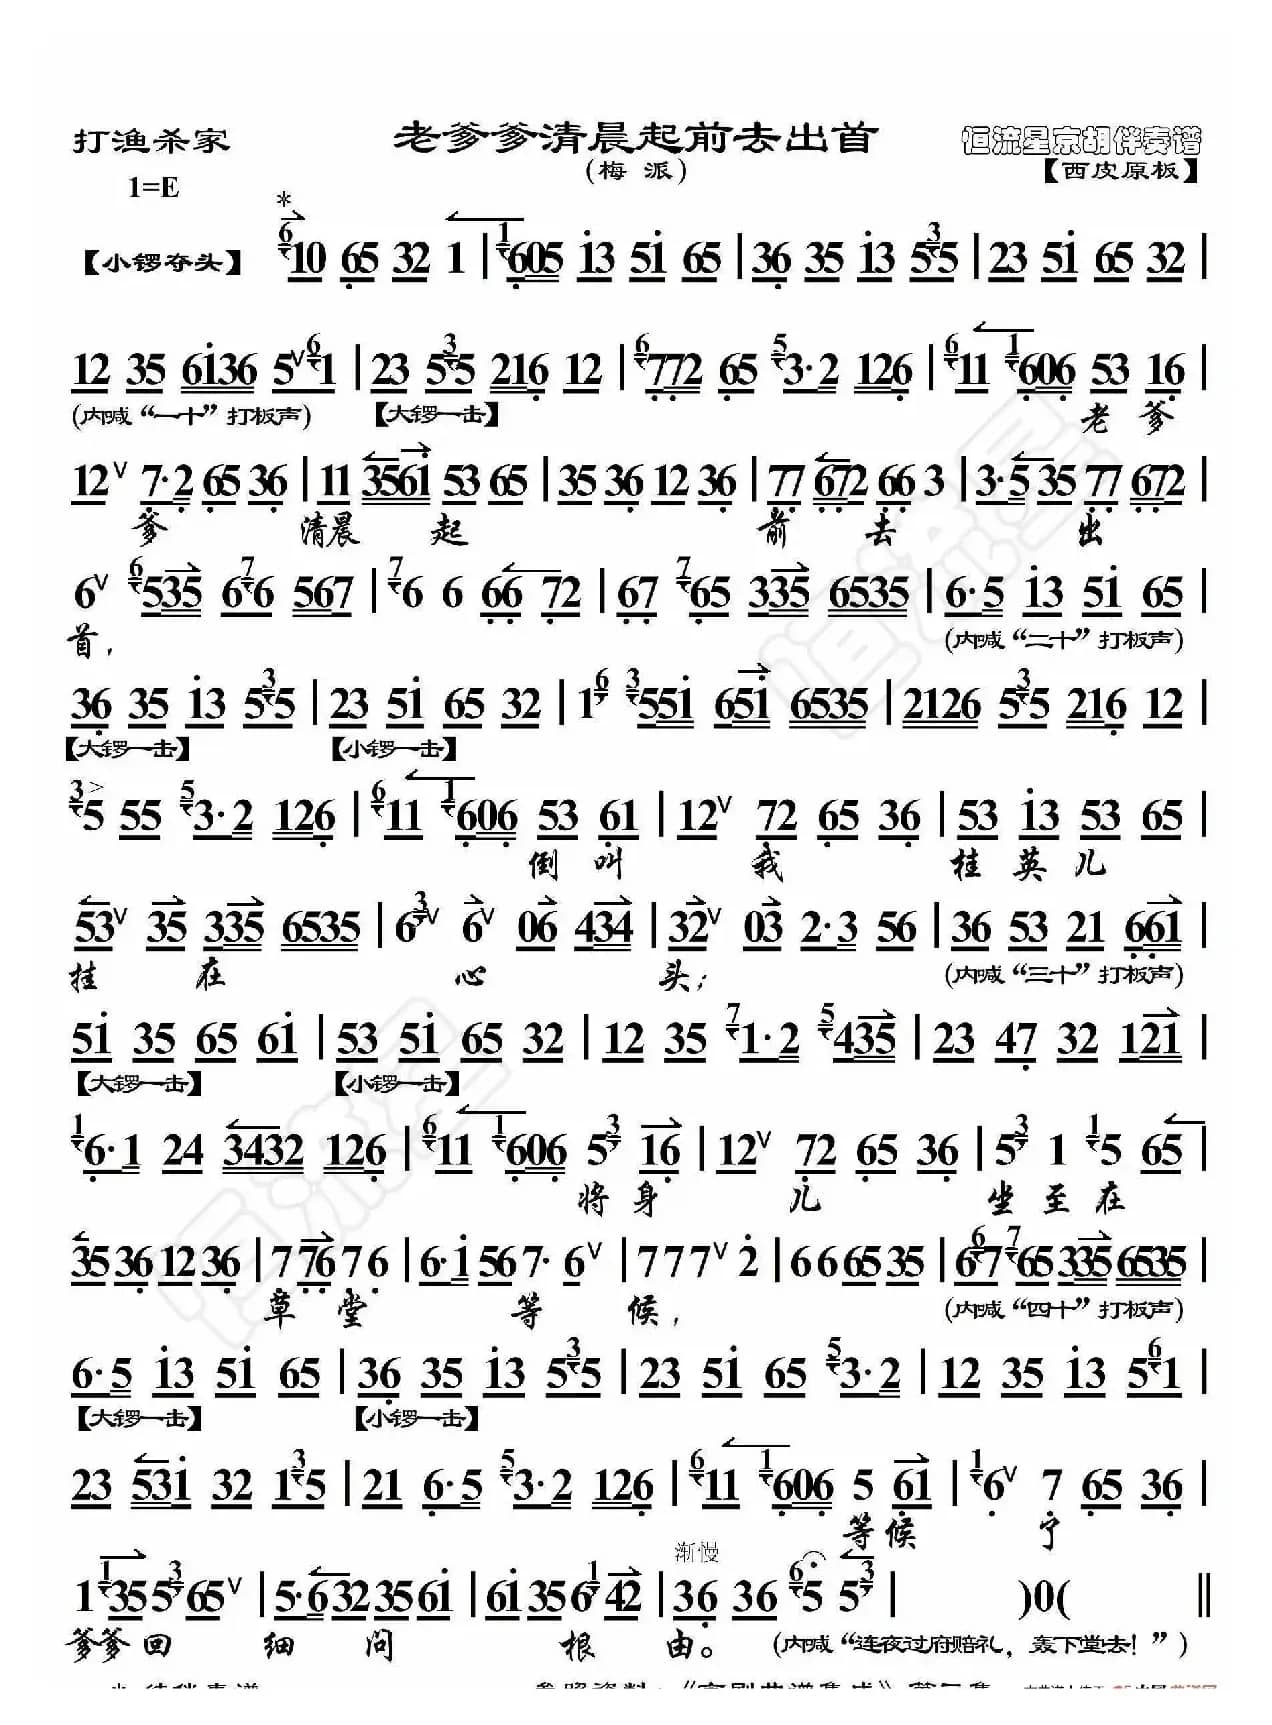 打渔杀家 老爹爹清晨起前去出首 恒流星京胡伴奏谱
(梅 派) 【西皮原板】
1=E
【小锣夺头】 *6 10 65 32 1 | 1 605 13 51 65 | 36 35 13 5 3 5 | 23 51 65 32 |
12 35 6136 5 ∨ 6 1 | 23 5 3 5 216 12 | 6 772 65 5 3·2 126 | 6 11 1 606 53 16 |
(内喊“一十”打板声) 【大锣一击】 老 爹
12 ∨ 7·2 65 36 | 11 3561 53 65 | 35 36 12 36 | 77 672 66 3 | 3·5 35 77 672 |
爹 清晨 起 前 去 出
6 ∨ 6 535 6 7 6 567 | 7 6 6 66 72 | 67 7 65 335 6535 | 6·5 13 51 65 |
首, (内喊“二十”打板声)
36 35 13 5 3 5 | 23 51 65 32 | 1 6 3 551 651 6535 | 2126 5 3 5 216 12 |
【大锣一击】 【小锣一击】
3 > 5 55 5 3·2 126 | 6 11 1 606 53 61 | 12 ∨ 72 65 36 | 53 13 53 65 |
倒 叫 我 桂 英 儿
53 ∨ 35 335 6535 | 6 3 ∨ 6 ∨ 06 434 | 32 ∨ 03 2·3 56 | 36 53 21 661 |
挂 在 心 头; (内喊“三十”打板声)
51 35 65 61 | 53 51 65 32 | 12 35 7 1·2 5 435 | 23 47 32 121 |
【大锣一击】 【小锣一击】
1 6·1 24 3432 126 | 6 11 1 606 5 3 16 | 12 ∨ 72 65 36 | 5 3 1 1 5 65 |
将 身 儿 坐 至 在
35 36 12 36 | 7 76 7 6 | 6·1 567· 6 ∨ | 7 7 7 ∨ 2 | 6 6 65 35 | 6 6 7 7 65 335 6535 |
草 堂 等 候, (内喊“四十”打板声)
6·5 13 51 65 | 36 35 13 5 3 5 | 23 51 65 5 3·2 | 12 35 13 5 6 1 |
【大锣一击】 【小锣一击】
23 531 32 1 3 5 | 21 6·5 5 3·2 126 | 6 11 1 606 5 61 | 1 6 ∨ 7 65 36 |
等 候 宁
渐慢
1 1 35 5 3 65 ∨ | 5·6 32 35 61 | 61 35 6 1 42 | 36 36 6 5 5 3 | )0( ‖
爹爹 回 细 问 根 由。 (内喊“连夜过府赔礼，轰下堂去！”)